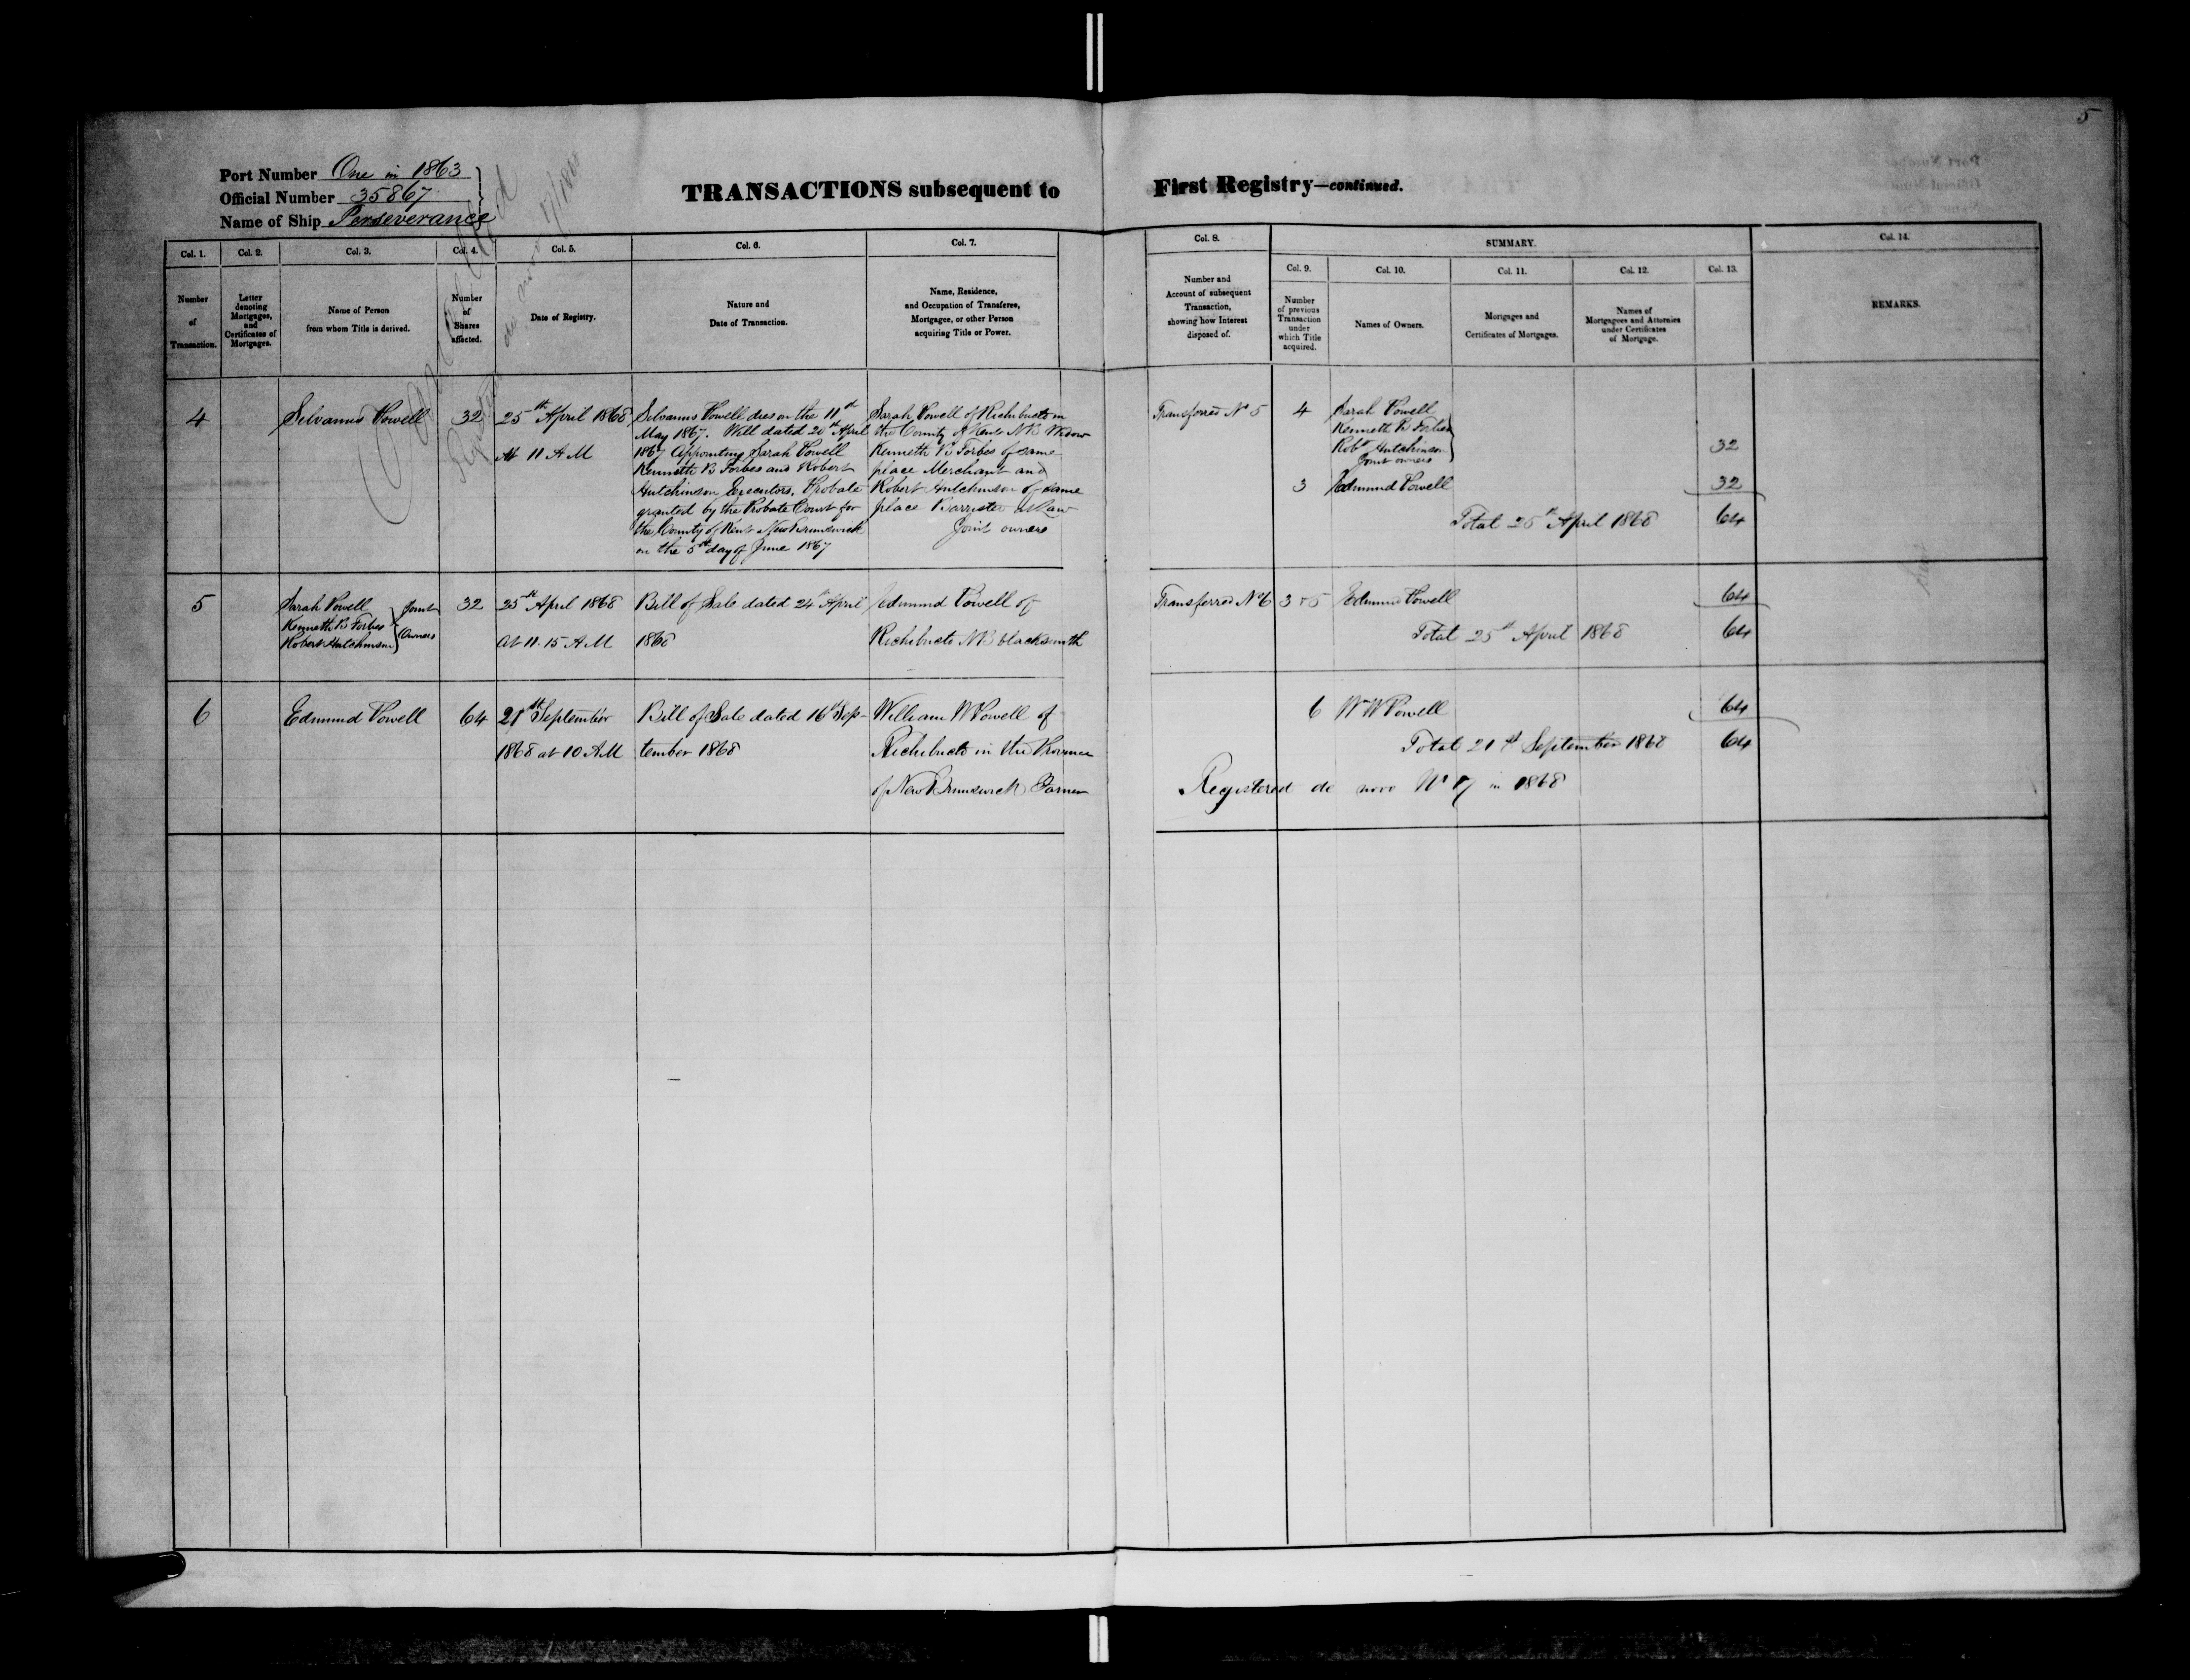 5
Port Number One in 1863
Official Number 35867
Name of Ship Perseverance
TRANSACTIONS subsequent to First Registry—continued.
Cancelled
Registered de novo 17/1868
Col. 1.
Number of Transaction.
Col. 2.
Letter denoting Mortgages, and Certificates of Mortgages.
Col. 3.
Name of Person
from whom Title is derived.
Col. 4.
Number of Shares affected.
Col. 5.
Date of Registry.
Col. 6.
Nature and
Date of Transaction.
Col. 7.
Name, Residence,
and Occupation of Transferee,
Mortgagee, or other Person
acquiring Title or Power.
Col. 8.
Number and
Account of subsequent
Transaction,
showing how Interest
disposed of.
SUMMARY.
Col. 9.
Number
of previous
Transaction
under
which Title
acquired.
Col. 10.
Names of Owners.
Col. 11.
Mortgages and
Certificates of Mortgages.
Col. 12.
Names of
Mortgagees and Attornies
under Certificates
of Mortgage.
Col. 13.
Col. 14.
REMARKS.
4
Silvanus Powell
32
25th April 1868
At 11 A M
Silvanus Powell dies on the 11th
May 1867. Will dated 20th April
1867 Appointing Sarah Powell
Kenneth B Forbes and Robert
Hutchinson Executors. Probate
granted by the Probate Court for
the County of Kent New Brunswick
on the 5th day of June 1867
Sarah Powell of Richibucto in
the County of Kent NB Widow
Kenneth B Forbes of same
place Merchant and
Robert Hutchinson of same
place Barrister at Law
Joint owners
Transferred No 5
4
Sarah Powell
Kenneth B Forbes
Robt Hutchinson
Joint owners
32
3 Edmund Powell 32
Total 25th April 1868 64
5
Sarah Powell
Kenneth B Forbes
Robert Hutchinson
Joint
Owners
32
25th April 1868
At 11.15 A M
Bill of Sale dated 24th April
1868
Edmund Powell of
Richibucto NB blacksmith
Transferred No 6
3 & 5 Edmund Powell 64
Total 25th April 1868 64
6
Edmund Powell
64
21st September
1868 at 10 AM
Bill of Sale dated 16th Sep-
tember 1868
William W Powell of
Richibucto in the Province
of New Brunswick Farmer
6 Wm W Powell 64
Total 21st September 1868 64
Registered de novo No 17 in 1868